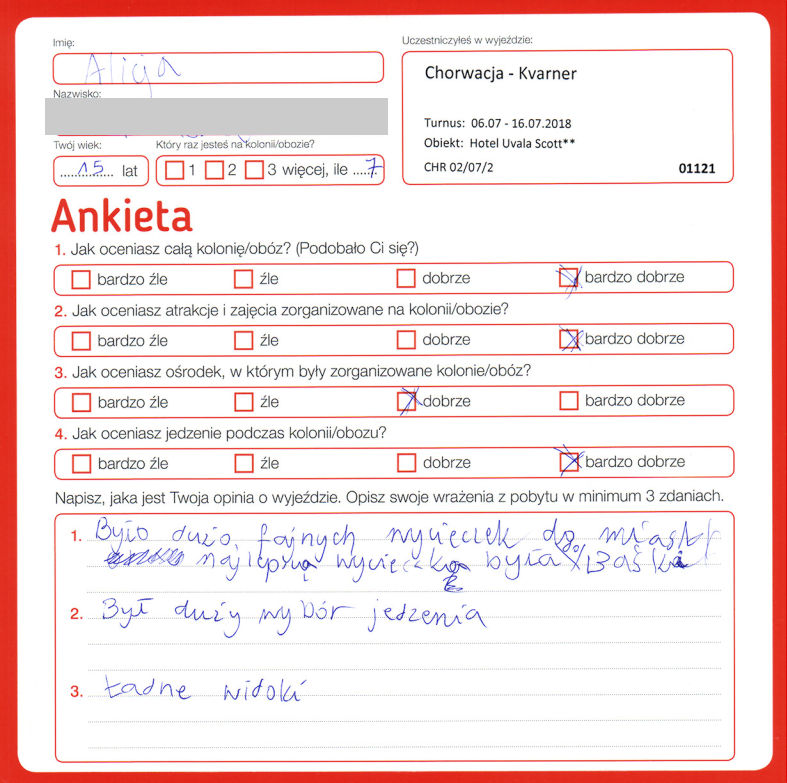 Imię:
Alicja
Uczestniczyłeś w wyjeździe:
Chorwacja - Kvarner
Turnus: 06.07 - 16.07.2018
Obiekt: Hotel Uvala Scott**
CHR 02/07/2
01121
Nazwisko:
Twój wiek:
15 lat
Który raz jesteś na kolonii/obozie?
1 2 3 więcej, ile 7
Ankieta
1. Jak oceniasz całą kolonię/obóz? (Podobało Ci się?)
bardzo źle źle dobrze bardzo dobrze
2. Jak oceniasz atrakcje i zajęcia zorganizowane na kolonii/obozie?
bardzo źle źle dobrze bardzo dobrze
3. Jak oceniasz ośrodek, w którym były zorganizowane kolonie/obóz?
bardzo źle źle dobrze bardzo dobrze
4. Jak oceniasz jedzenie podczas kolonii/obozu?
bardzo źle źle dobrze bardzo dobrze
Napisz, jaka jest Twoja opinia o wyjeździe. Opisz swoje wrażenia z pobytu w minimum 3 zdaniach.
1. Było dużo fajnych wycieczek do miast
najlepszą wycieczką była do Baški
2. Był duży wybór jedzenia
3. Ładne widoki